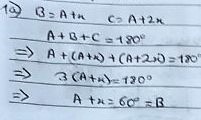 1a) B=A+x C=A+2x
A+B+C=180°
=> A+(A+x)+(A+2x)=180°
=> 3(A+x)=180°
=> A+x=60°=B